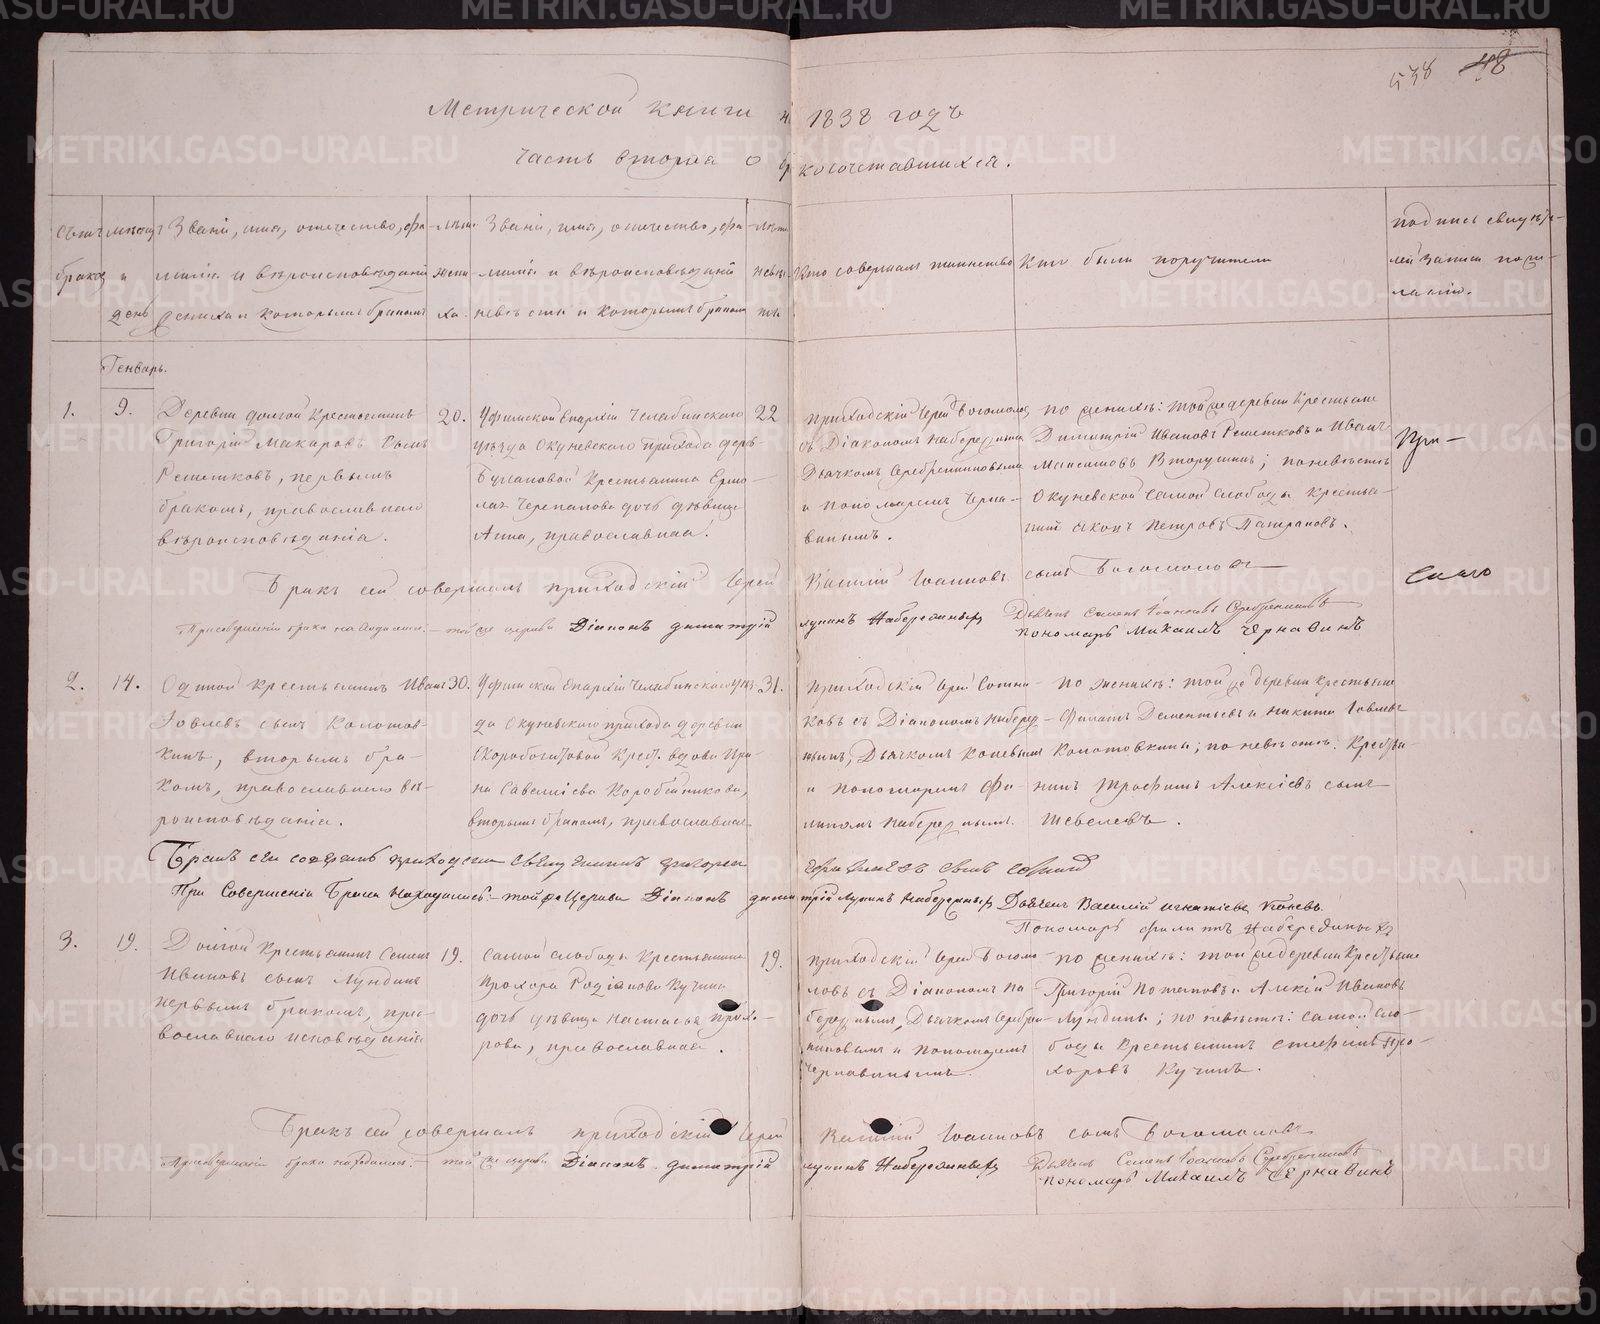 538 48
Метрической книги на 1838 годъ
часть вторая о бракосочетавшихся.
Счетъ браковъ
Мѣсяцъ и день
Званіе, имя, отечество, фамилія и вѣроисповѣданіе жениха и которымъ бракомъ
лѣта жениха.
Званіе, имя, отечество, фамилія и вѣроисповѣданіе невѣсты и которымъ бракомъ
лѣта невѣсты
Кто совершалъ таинство
Кто были поручители
подпись свидѣтелей записи по желанію.
Генварь.
1.
9.
Деревни Долгой Крестьянинъ
Григорій Макаровъ сынъ
Решетковъ, первымъ
бракомъ, православнаго
вѣроисповѣданія.
20.
Уфимской Епархіи Челябинскаго
уѣзда Окуневскаго прихода дерев.
Булановой Крестьянина Ермо-
лая Черепанова дочь дѣвица
Анна, православная.
22
Приходскій Іерей Богомоловъ
съ Діакономъ Набережнымъ
Дьячкомъ Серебренниковымъ
и пономаремъ Черна-
винымъ.
по женихѣ: той же деревни Крестьяне
Димитрій Ивановъ Решетковъ и Иванъ
Максимовъ Вторушинъ; по невѣстѣ
Окуневской самой слободы крестья-
нинъ Іаковъ Петровъ Патраковъ.
При-
Бракъ сей совершалъ приходскій Іерей Василій Іоанновъ сынъ Богомоловъ
При совершеніи брака находились: - той же церкви Діаконъ Димитрій Лукинъ Набережныхъ Дьячекъ Семенъ Іоанновъ Серебренниковъ
пономарь Михаилъ Чернавинъ
2.
14.
Оной Крестьянинъ Иванъ
Іовлевъ сынъ Колотов-
кинъ, вторымъ бра-
комъ, православнаго вѣ-
роисповѣданія.
30.
Уфимской Епархіи Челябинскаго уѣз-
да Окуневскаго прихода деревни
Скоробогатовой Крест. вдова Ири-
на Савеліева Коробейникова,
вторымъ бракомъ, православная
31.
Приходскій Іерей Сотни-
ковъ съ Діакономъ Набереж-
нымъ, Дьячкомъ Коневымъ
и пономаремъ Фи-
липомъ Набережнымъ.
по женихѣ: той же деревни крестьяне
Филатъ Дементьевъ и Никита Іовлевъ
Колотовкины; по невѣстѣ: Крестья-
нинъ Трофимъ Алексіевъ сынъ
Шевелевъ.
Бракъ сей совершалъ приходскій священникъ
При Совершеніи Брака Находились: - той же Церкви Діаконъ Димитрій Лукинъ Набережныхъ Дьячекъ Василій Игнатіевъ Коневъ.
Пономарь Филиппъ Набережныхъ
3.
19.
Долгой Крестьянинъ Семенъ
Ивановъ сынъ Лундинъ
первымъ бракомъ, пра-
вославнаго исповѣданія
19.
Самой слободы Крестьянина
Прохора Родіонова Кучина
дочь дѣвица Настасья Прохо-
рова, православная.
19.
Приходскій Іерей Богомо-
ловъ съ Діакономъ На-
бережнымъ, Дьячкомъ Серебрен-
никовымъ и пономаремъ
Чернавинымъ.
по женихѣ: той же деревни Крестьяне
Григорій Потаповъ и Алексій Ивановъ
Лундины; по невѣстѣ: самой сло-
боды Крестьянинъ Стефанъ Про-
хоровъ Кучинъ.
Бракъ сей совершалъ приходскій Іерей Василій Іоанновъ сынъ Богомоловъ
При совершеніи брака находились: - той же церкви Діаконъ Димитрій Лукинъ Набережныхъ Дьячекъ Семенъ Іоанновъ Серебренниковъ
пономарь Михаилъ Чернавинъ
METRIKI.GASO-URAL.RU